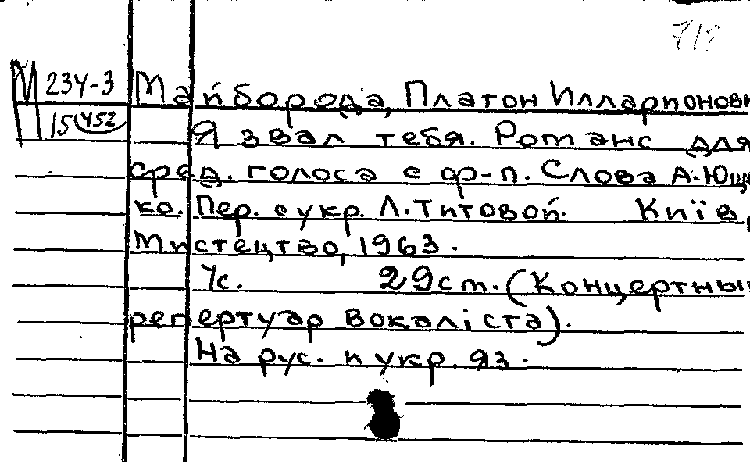 718
М 234-3
П 15 452
Майборода, Платон Илларионови
Я звал тебя. Романс для
сред. голоса с ф-п. Слова А. Юще
ко. Пер. с укр. Л. Титовой. Київ,
Мистецтво, 1963.
7с. 29 см. (Концертный
репертуар вокаліста).
На рус. и укр. яз.